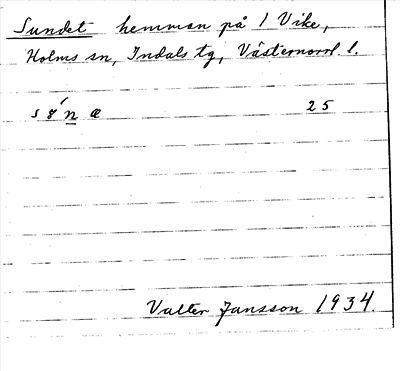 Sundet hemman på 1 Vike,
Holms sn, Indals tg, Västernorrl. l.
s 8́ n æ 25
Valter Jansson 1934.